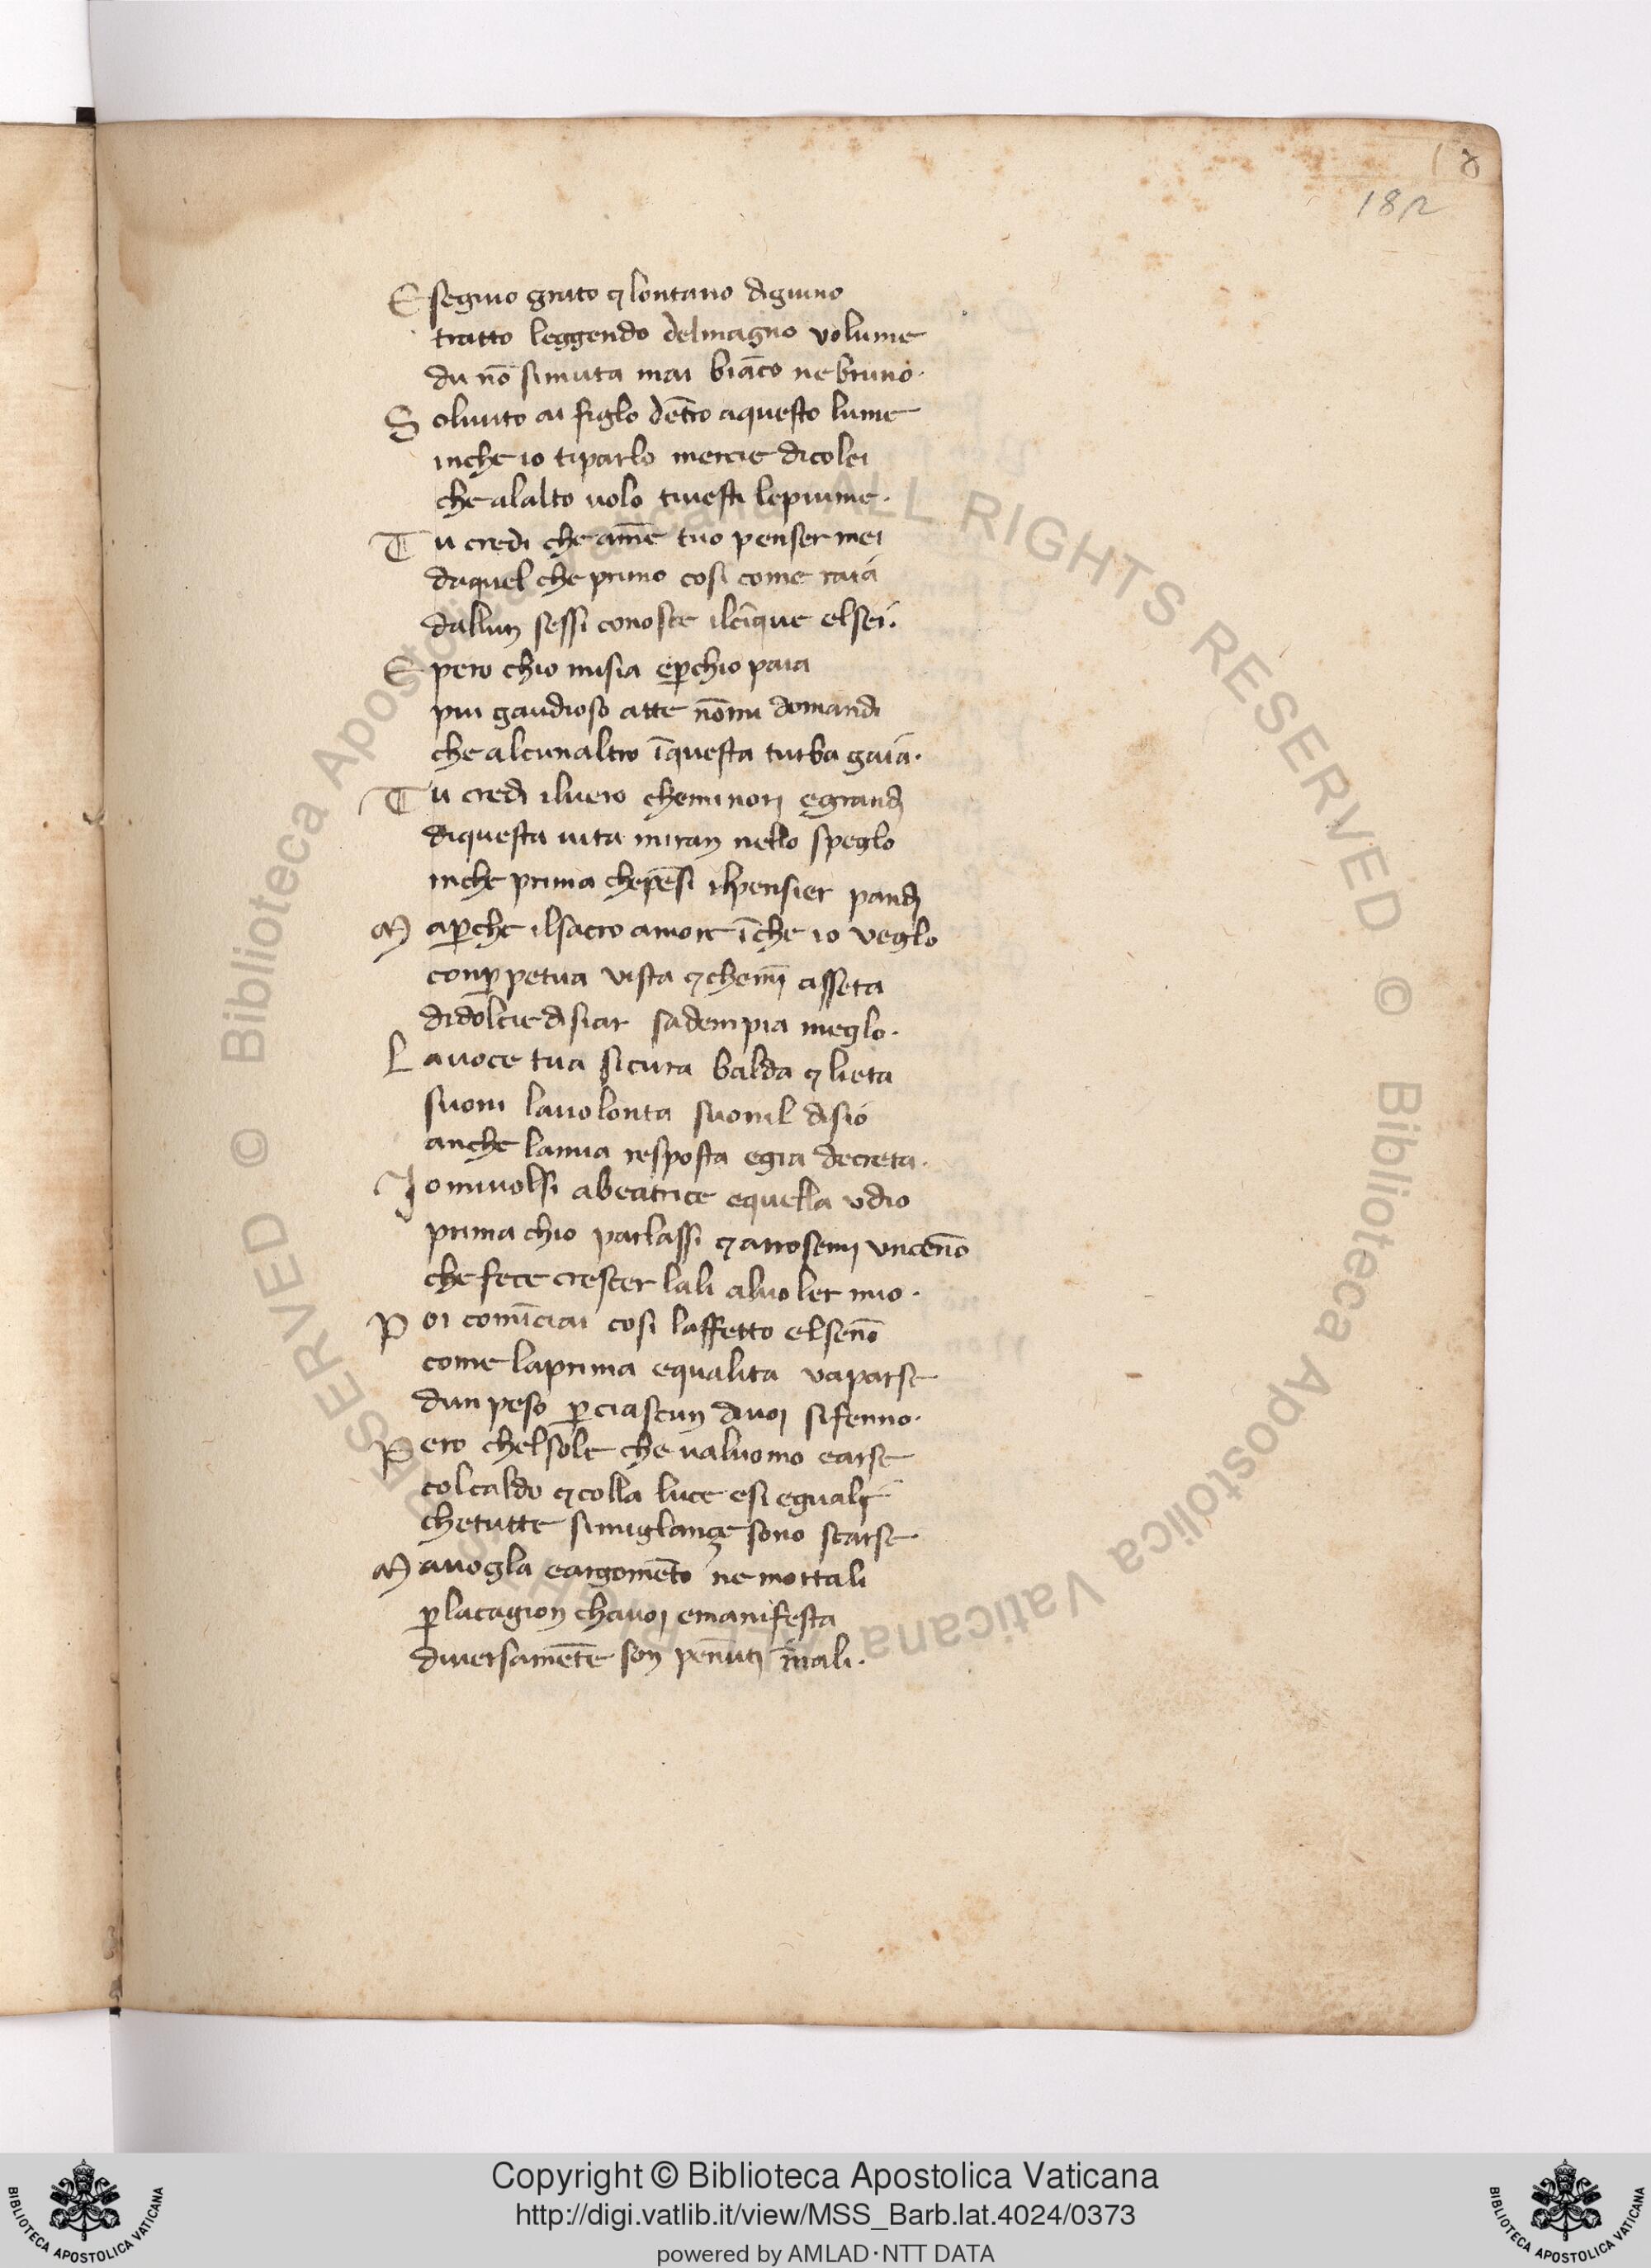 18
182
E seguio grato ⁊ lontano digiuno
tratto leggendo delmagno volume
du nō simuta mai biāco nebruno·
S oluuto ai figlo dētro aquesto lume
inche io tiparlo mercie dicolei
che alalto uolo tiuesti lepiume·
T u credi che amē tuo penser mei
daquel che primo cosi come raia
dallun sessi conosce ilcīque elsei·
E pero chio misia eꝑchio paia
piu gaudioso atte nōmi domandi
che alcunaltro īquesta turba gaia·
T u credi iluero cheminori egrandi
diquesta uita miran nello speglo
inche prima chepēsi ilpensier pandi
M aꝑche ilsacro amore īche io veglo
conꝑpetua vista ⁊ chemī asseta
didolcie disiar sadempia meglo·
L auoce tua sicura balda ⁊ lieta
suoni lauolonta suonil disio
anche lamia resposta egia decreta·
I omiuolsi abeatrice equella udio
prima chio parlassi ⁊ arrosemi uncēno
che fece crescer lali aluoler mio·
P oi comīciai cosi laffetto elsēno
come laprima equalita vaparse
dun peso ꝑ ciascun diuoi sifenno·
P ero chelsole che ualuomo earse
colcaldo ⁊ colla luce esi eguali
chetutte simiglançe sono scarse·
M auogla eargomēto ne mortali
ꝑ lacagion chauoi emanifesta
diuersamēte son pēnuti īnali·
© Biblioteca Apostolica Vaticana ALL RIGHTS RESERVED © Biblioteca Apostolica Vaticana ALL RIGHTS RESERVED
Copyright © Biblioteca Apostolica Vaticana
http://digi.vatlib.it/view/MSS_Barb.lat.4024/0373
powered by AMLAD·NTT DATA
BIBLIOTECA APOSTOLICA VATICANA
BIBLIOTECA APOSTOLICA VATICANA